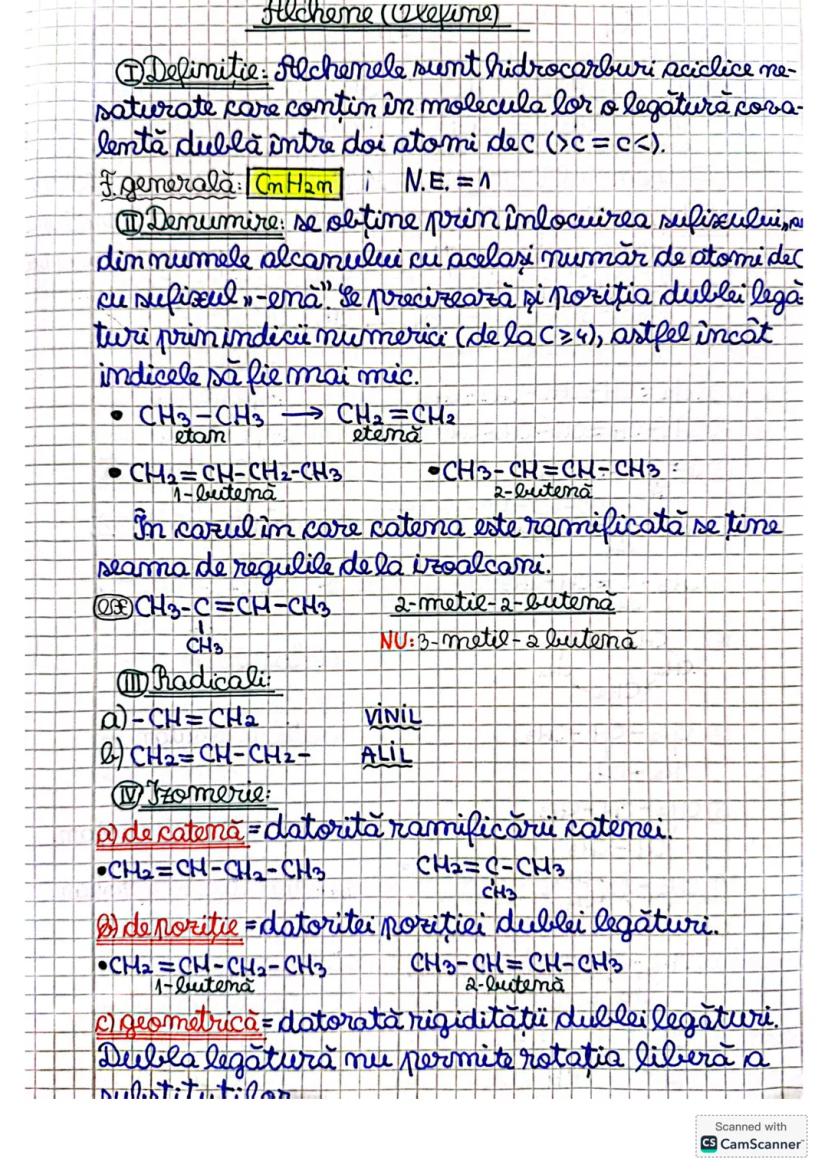 Alchene (Olefine)
I Definiție: Alchenele sunt hidrocarburi aciclice ne-
saturate care conțin în molecula lor o legătură cova-
lentă dublă între doi atomi de C (>C=C<).
F. generală: CnH2n ; N.E. = 1
II Denumire: se obține prin înlocuirea sufixului
din numele alcanului cu același număr de atomi de C
cu sufixul „-enă". Se precizează și poziția dublei legă-
turi prin indicii numerici (de la C≥4), astfel încât
indicele să fie mai mic.
• CH3-CH3 → CH2=CH2
etan etenă
• CH2=CH-CH2-CH3 • CH3-CH=CH-CH3 :
1-butenă 2-butenă
În cazul în care catena este ramificată se ține
seama de regulile de la izoalcani.
ex CH3-C=CH-CH3 2-metil-2-butenă
CH3 NU: 3-metil-2 butenă
III Radicali:
a) -CH=CH2 VINIL
b) CH2=CH-CH2- ALIL
IV Izomerie:
a) de catenă = datorită ramificării catenei.
• CH2=CH-CH2-CH3 CH2=C-CH3
CH3
b) de poziție = datoritei poziției dublei legături.
• CH2=CH-CH2-CH3 CH3-CH=CH-CH3
1-butenă 2-butenă
c) geometrică = datorată rigidității dublei legături.
Dubla legătură nu permite rotația liberă a
substituților
Scanned with
CS CamScanner